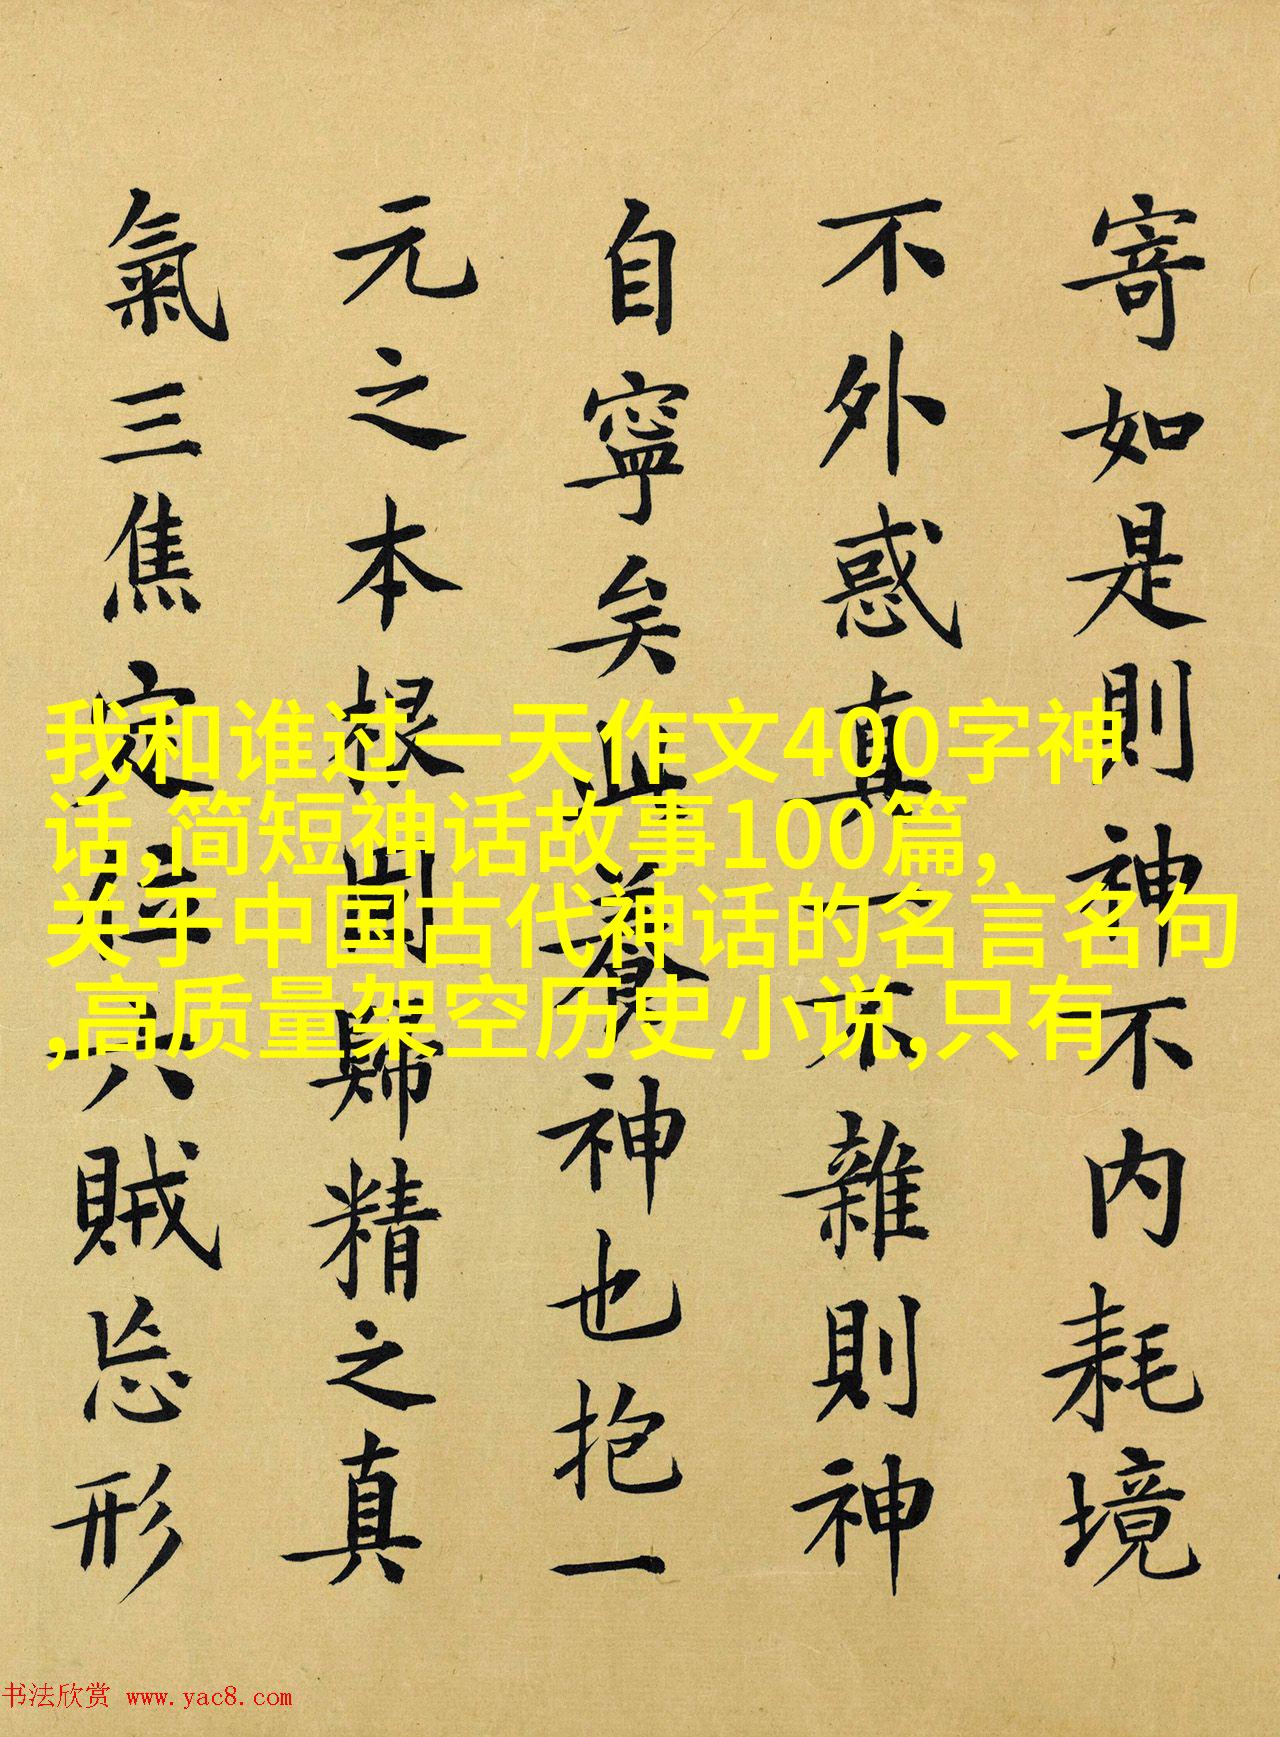 寄如是則神不内耗境
不外惑真一不雜則神
自寧矣此養神也抱一
元之本根固歸精之真
氣三焦定位六賊忘形
我和谁过一天作文400字神
话,简短神话故事100篇,
关于中国古代神话的名言名句
,高质量架空历史小说,只有
书法欣赏 www.yac8.com